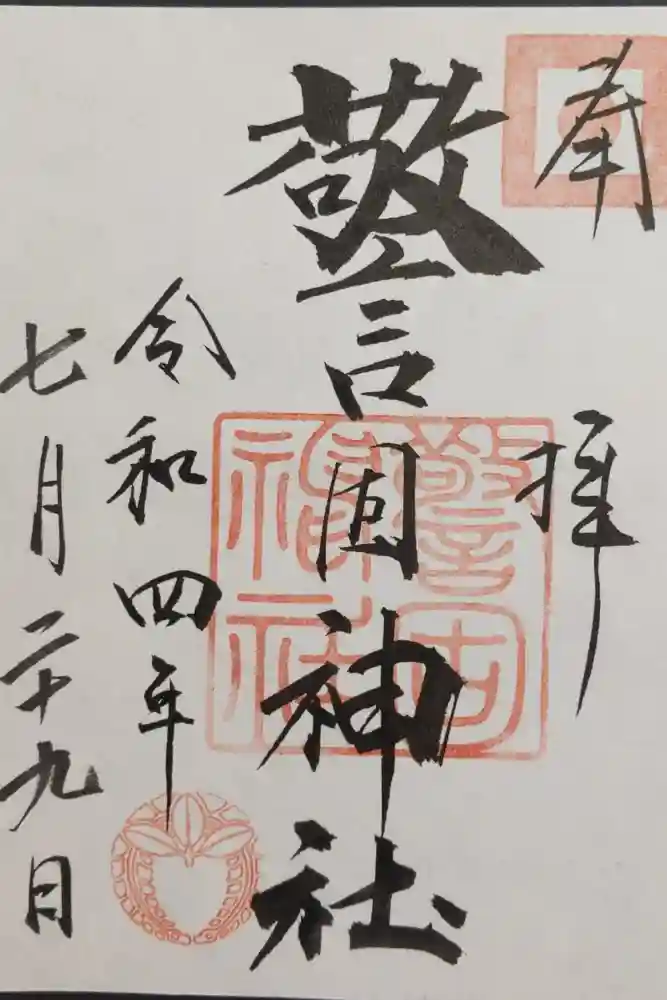 奉拝
警固神社
警固
神社
令和四年
七月二十九日